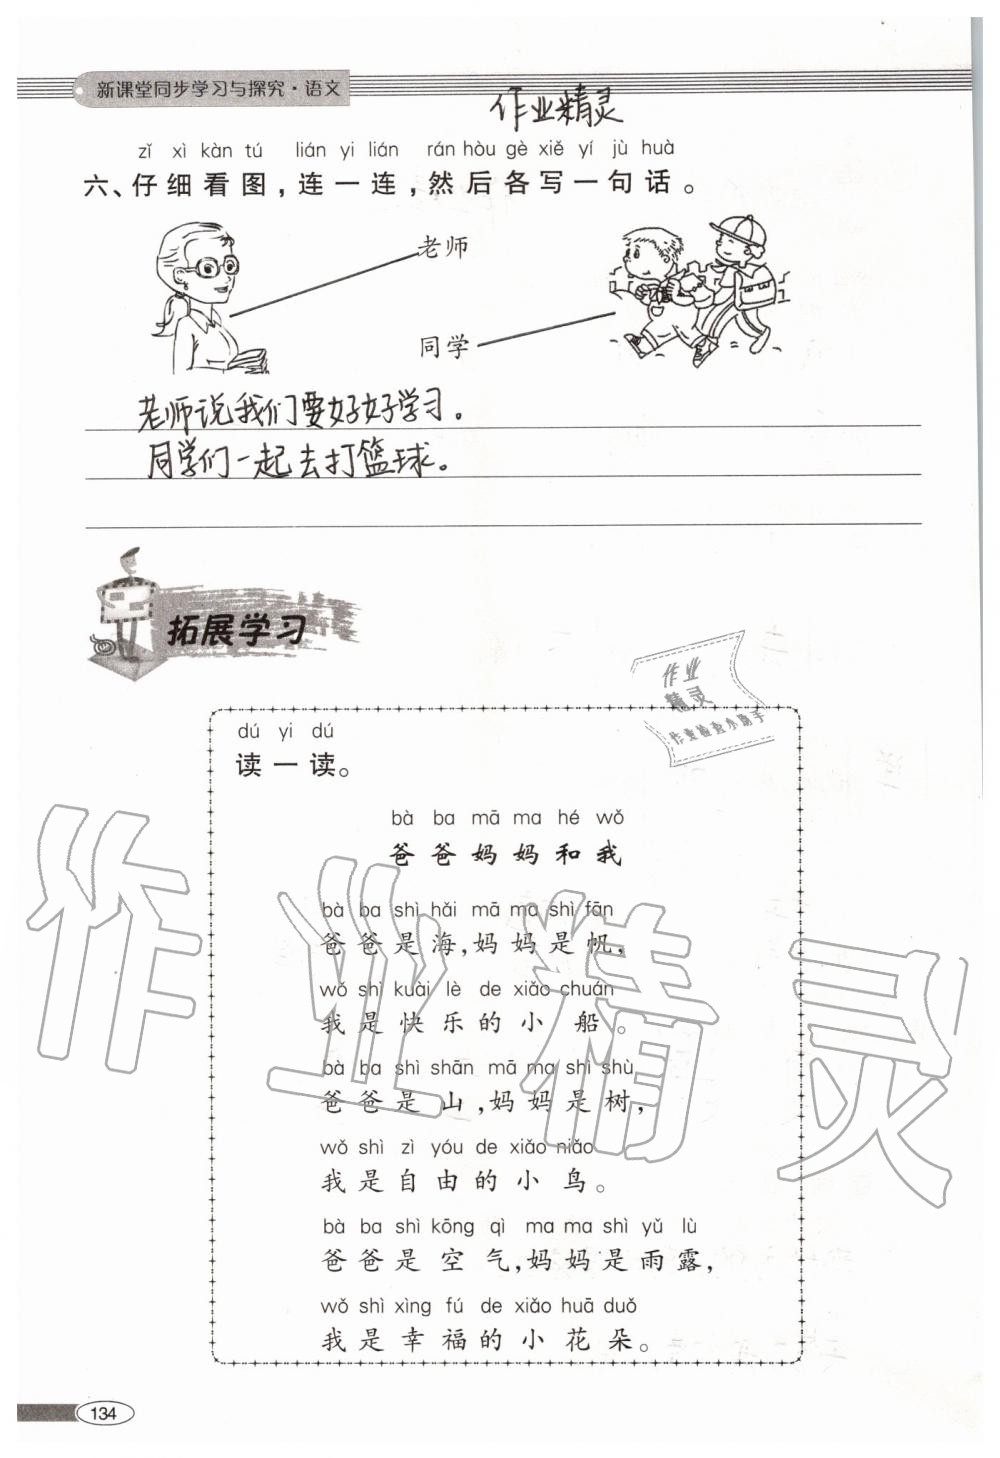 新课堂同步学习与探究·语文
作业精灵
zǐ xì kàn tú lián yi lián rán hòu gè xiě yí jù huà
六、仔细看图，连一连，然后各写一句话。
老师
同学
老师说我们要好好学习。
同学们一起去打篮球。
拓展学习
作业
精灵
作业检查小助手
dú yi dú
读一读。
bà ba mā ma hé wǒ
爸爸妈妈和我
bà ba shì hǎi mā ma shì fān
爸爸是海，妈妈是帆，
wǒ shì kuài lè de xiǎo chuán
我是快乐的小船。
bà ba shì shān mā ma shì shù
爸爸是山，妈妈是树，
wǒ shì zì yóu de xiǎo niǎo
我是自由的小鸟。
bà ba shì kōng qì ma ma shì yǔ lù
爸爸是空气，妈妈是雨露，
wǒ shì xìng fú de xiǎo huā duǒ
我是幸福的小花朵。
作业精灵
134